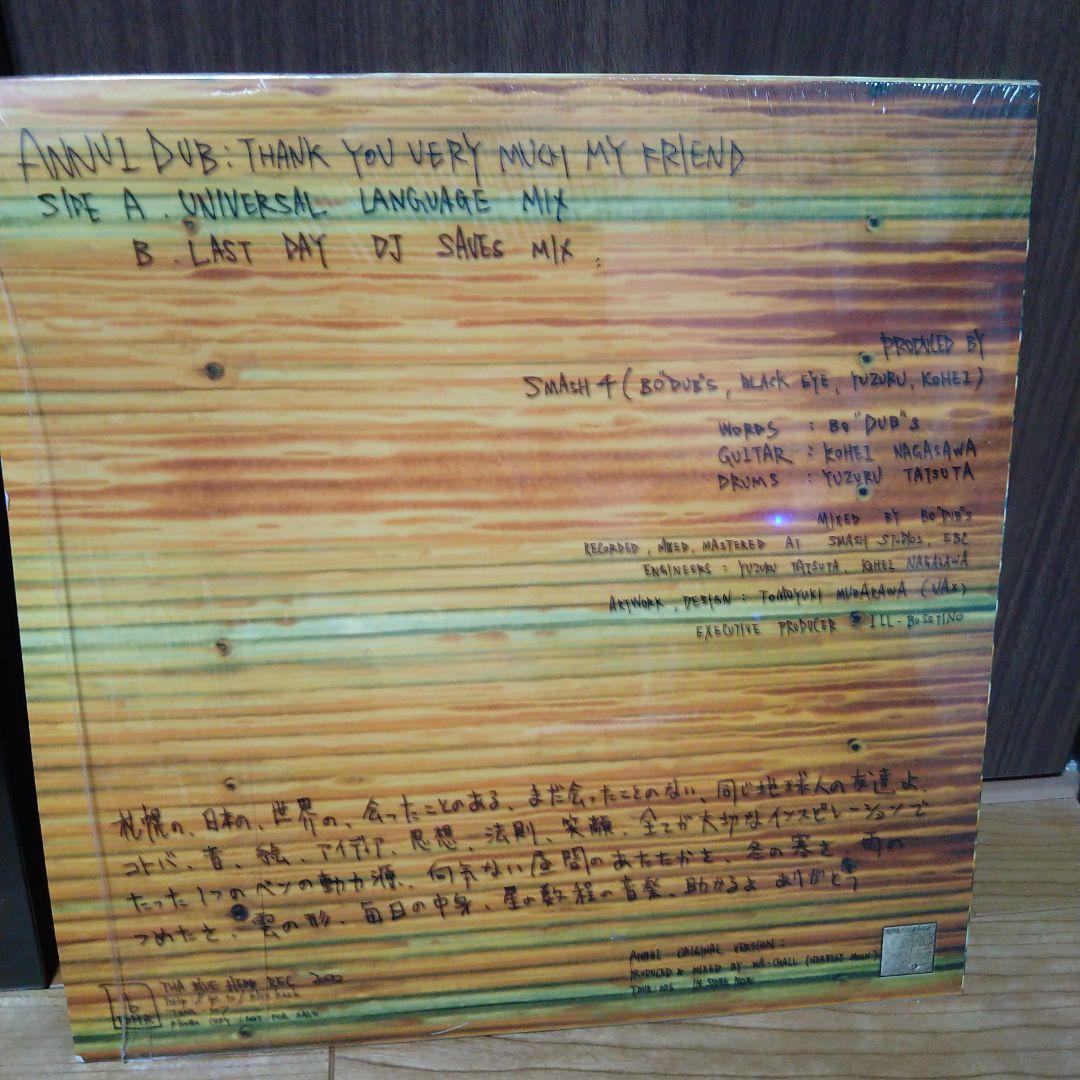 ANNUI DUB : THANK YOU VERY MUCH MY FRIEND
SIDE A . UNIVERSAL LANGUAGE MIX
B . LAST DAY DJ SAVES MIX .
PRODUCED BY
SMASH 4 ( BO"DUB"S, BLACK EYE, YUZURU, KOHEI )
WORDS : BO"DUB"S
GUITAR : KOHEI NAGASAWA
DRUMS : YUZURU TATSUTA
MIXED BY BO"DUB"S
RECORDED, MIXED, MASTERED AT SMASH STUDIOS, EBC
ENGINEERS : YUZURU TATSUTA, KOHEI NAGASAWA
ARTWORK, DESIGN : TOMOYUKI MURAKAWA (UAX)
EXECUTIVE PRODUCER ILL-BOSSTINO
札幌の、日本の、世界の、会ったことのある、まだ会ったことのない、同じ地球人の友達よ.
コトバ、音、絵、アイディア、思想、法則、笑顔、全てが大切なインスピレーションで
たった1つのペンの動力源. 何気ない昼間のあたたかさ、冬の寒さ、雨の
つめたさ、雲の形、毎日の中身、星の数程の音楽. 助かるよ ありがとう
THA BLUE HERB REC
PROMO COPY : NOT FOR SALE
ANNUI ORIGINAL VERSION :
PRODUCED & MIXED BY WA-CHALL
IN STORE NOW